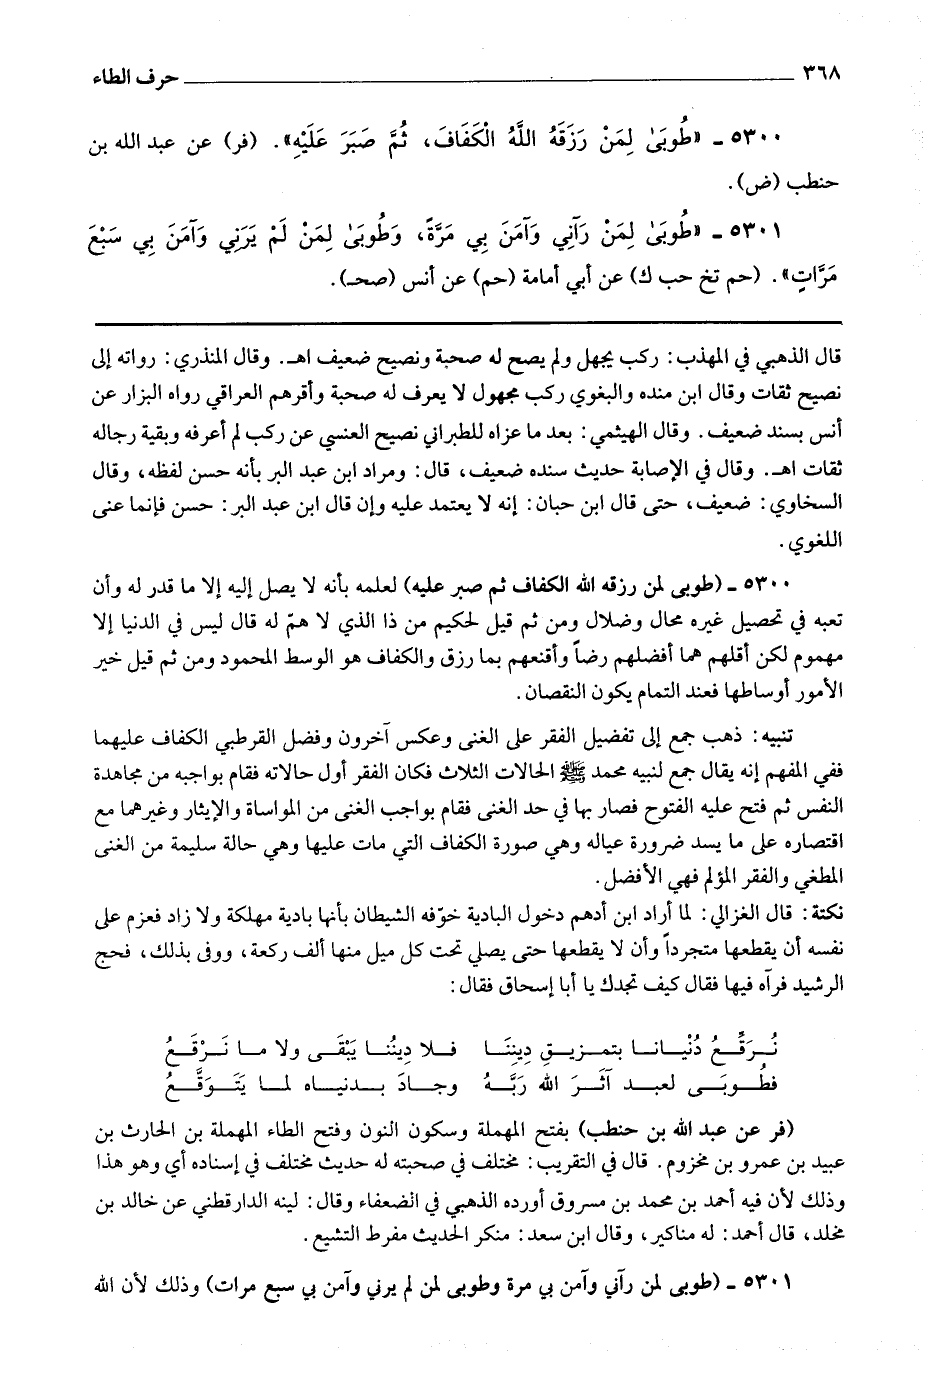 ٣٦٨ حرف الطاء
٥٣٠٠ ـ «طُوبَىٰ لِمَنْ رَزَقَهُ اللَّهُ الْكَفَافَ، ثُمَّ صَبَرَ عَلَيْهِ». (فر) عن عبد الله بن
حنطب (ض).
٥٣٠١ ـ «طُوبَىٰ لِمَنْ رَآنِي وَآمَنَ بِي مَرَّةً، وَطُوبَىٰ لِمَنْ لَمْ يَرَنِي وَآمَنَ بِي سَبْعَ
مَرَّاتٍ». (حم تخ حب ك) عن أبي أمامة (حم) عن أنس (صحـ).
قال الذهبي في المهذب: ركب يجهل ولم يصح له صحبة ونصيح ضعيف اهـ. وقال المنذري: رواته إلى
نصيح ثقات وقال ابن منده والبغوي ركب مجهول لا يعرف له صحبة وأقرهم العراقي رواه البزار عن
أنس بسند ضعيف. وقال الهيثمي: بعد ما عزاه للطبراني نصيح العنسي عن ركب لم أعرفه وبقية رجاله
ثقات اهـ. وقال في الإصابة حديث سنده ضعيف، قال: ومراد ابن عبد البر بأنه حسن لفظه، وقال
السخاوي: ضعيف، حتى قال ابن حبان: إنه لا يعتمد عليه وإن قال ابن عبد البر: حسن فإنما عنى
اللغوي.
٥٣٠٠ ـ (طوبى لمن رزقه الله الكفاف ثم صبر عليه) لعلمه بأنه لا يصل إليه إلا ما قدر له وأن
تعبه في تحصيل غيره محال وضلال ومن ثم قيل لحكيم من ذا الذي لا همّ له قال ليس في الدنيا إلا
مهموم لكن أقلهم هما أفضلهم رضاً وأقنعهم بما رزق والكفاف هو الوسط المحمود ومن ثم قيل خير
الأمور أوساطها فعند التمام يكون النقصان.
تنبيه: ذهب جمع إلى تفضيل الفقر على الغنى وعكس آخرون وفضل القرطبي الكفاف عليهما
ففي المفهم إنه يقال جمع لنبيه محمد ﷺ الحالات الثلاث فكان الفقر أول حالاته فقام بواجبه من مجاهدة
النفس ثم فتح عليه الفتوح فصار بها في حد الغنى فقام بواجب الغنى من المواساة والإيثار وغيرهما مع
اقتصاره على ما يسد ضرورة عياله وهي صورة الكفاف التي مات عليها وهي حالة سليمة من الغنى
المطغي والفقر المؤلم فهي الأفضل.
نكتة: قال الغزالي: لما أراد ابن أدهم دخول البادية خوّفه الشيطان بأنها بادية مهلكة ولا زاد فعزم على
نفسه أن يقطعها متجرداً وأن لا يقطعها حتى يصلي تحت كل ميل منها ألف ركعة، ووفى بذلك، فحج
الرشيد فرآه فيها فقال كيف تجدك يا أبا إسحاق فقال:
نُرَقِّعُ دُنْيَانا بتمزيقِ دِينِنَا فلا دِينُنا يَبْقَى ولا ما نَرْقَعُ
فطُوبَى لعبد آثَرَ الله رَبَّهُ وجادَ بدنياه لما يَتَوَقَّعُ
(فر عن عبد الله بن حنطب) بفتح المهملة وسكون النون وفتح الطاء المهملة بن الحارث بن
عبيد بن عمرو بن مخزوم. قال في التقريب: مختلف في صحبته له حديث مختلف في إسناده أي وهو هذا
وذلك لأن فيه أحمد بن محمد بن مسروق أورده الذهبي في الضعفاء وقال: لينه الدارقطني عن خالد بن
مخلد، قال أحمد: له مناكير، وقال ابن سعد: منكر الحديث مفرط التشيع.
٥٣٠١ ـ (طوبى لمن رآني وآمن بي مرة وطوبى لمن لم يرني وآمن بي سبع مرات) وذلك لأن الله